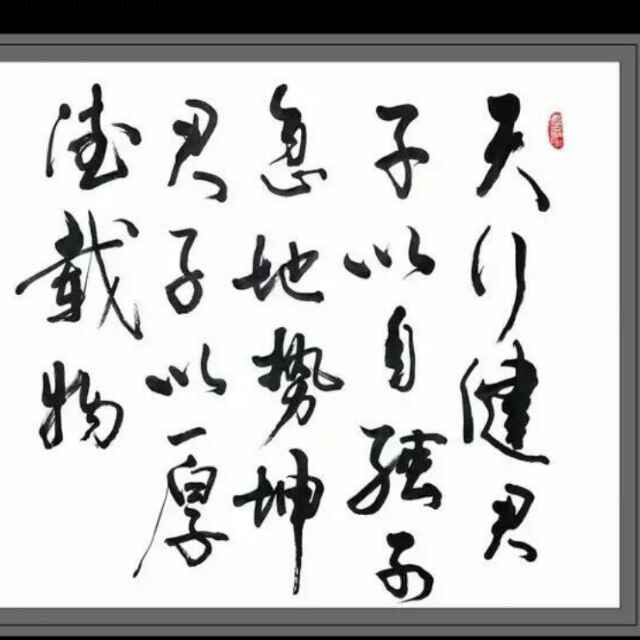 天行健君
子以自强不
息地势坤
君子以厚
德載物